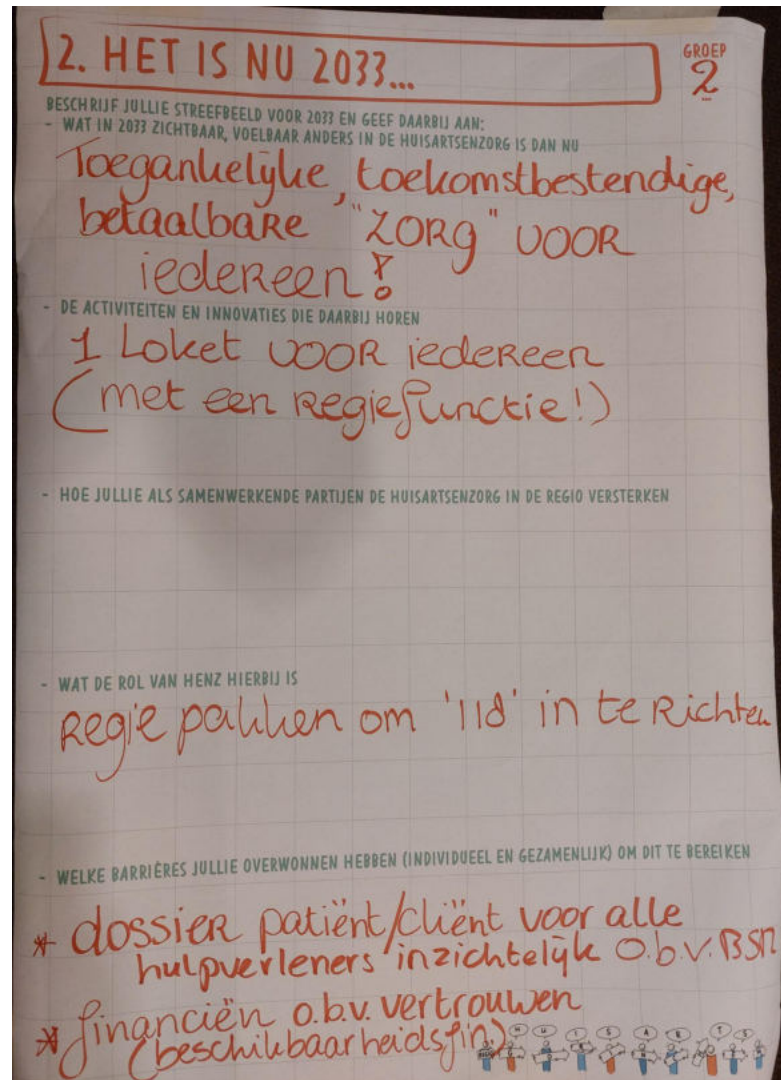 2. HET IS NU 2033...
GROEP
2
BESCHRIJF JULLIE STREEFBEELD VOOR 2033 EN GEEF DAARBIJ AAN:
- WAT IN 2033 ZICHTBAAR, VOELBAAR ANDERS IN DE HUISARTSENZORG IS DAN NU
Toegankelijke, toekomstbestendige,
betaalbare "ZORg" VOOR
iedereen!
- DE ACTIVITEITEN EN INNOVATIES DIE DAARBIJ HOREN
1 Loket VOOR iedereen
(met een Regiefunctie!)
- HOE JULLIE ALS SAMENWERKENDE PARTIJEN DE HUISARTSENZORG IN DE REGIO VERSTERKEN
- WAT DE ROL VAN HENZ HIERBIJ IS
Regie pakken om '118' in te Richten
- WELKE BARRIÈRES JULLIE OVERWONNEN HEBBEN (INDIVIDUEEL EN GEZAMENLIJK) OM DIT TE BEREIKEN
* dossier patiënt/cliënt voor alle
hulpverleners inzichtelijk o.b.v. BSN
* financiën o.b.v. vertrouwen
(beschikbaarheidsfin)
H U I S A R T S